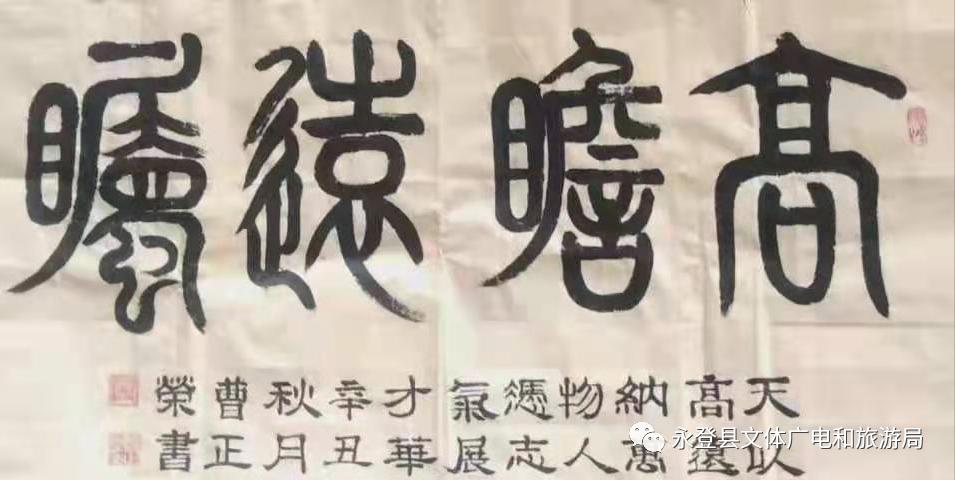 高瞻遠矚
天以
高遠
納萬
物人
憑志
氣展
才華
辛丑
秋月
曹正
榮書
永登县文体广电和旅游局